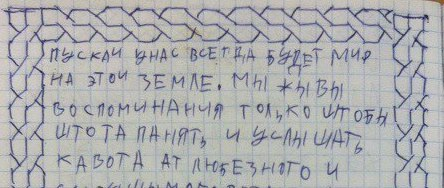 ПУСКАИ УНАС ВСЕГДА БУДЕТ МИР
НА ЭТОИ ЗЕМЛЕ. МЫ ЖЫВЫ
ВОСПОМИНАНИЯ ТОЛЬКО ШТОБЫ
ШТОТА ПАНЯТЬ И УСЛЫШАТЬ
КАВОТА АТ ЛЮБЕЗНОГО И